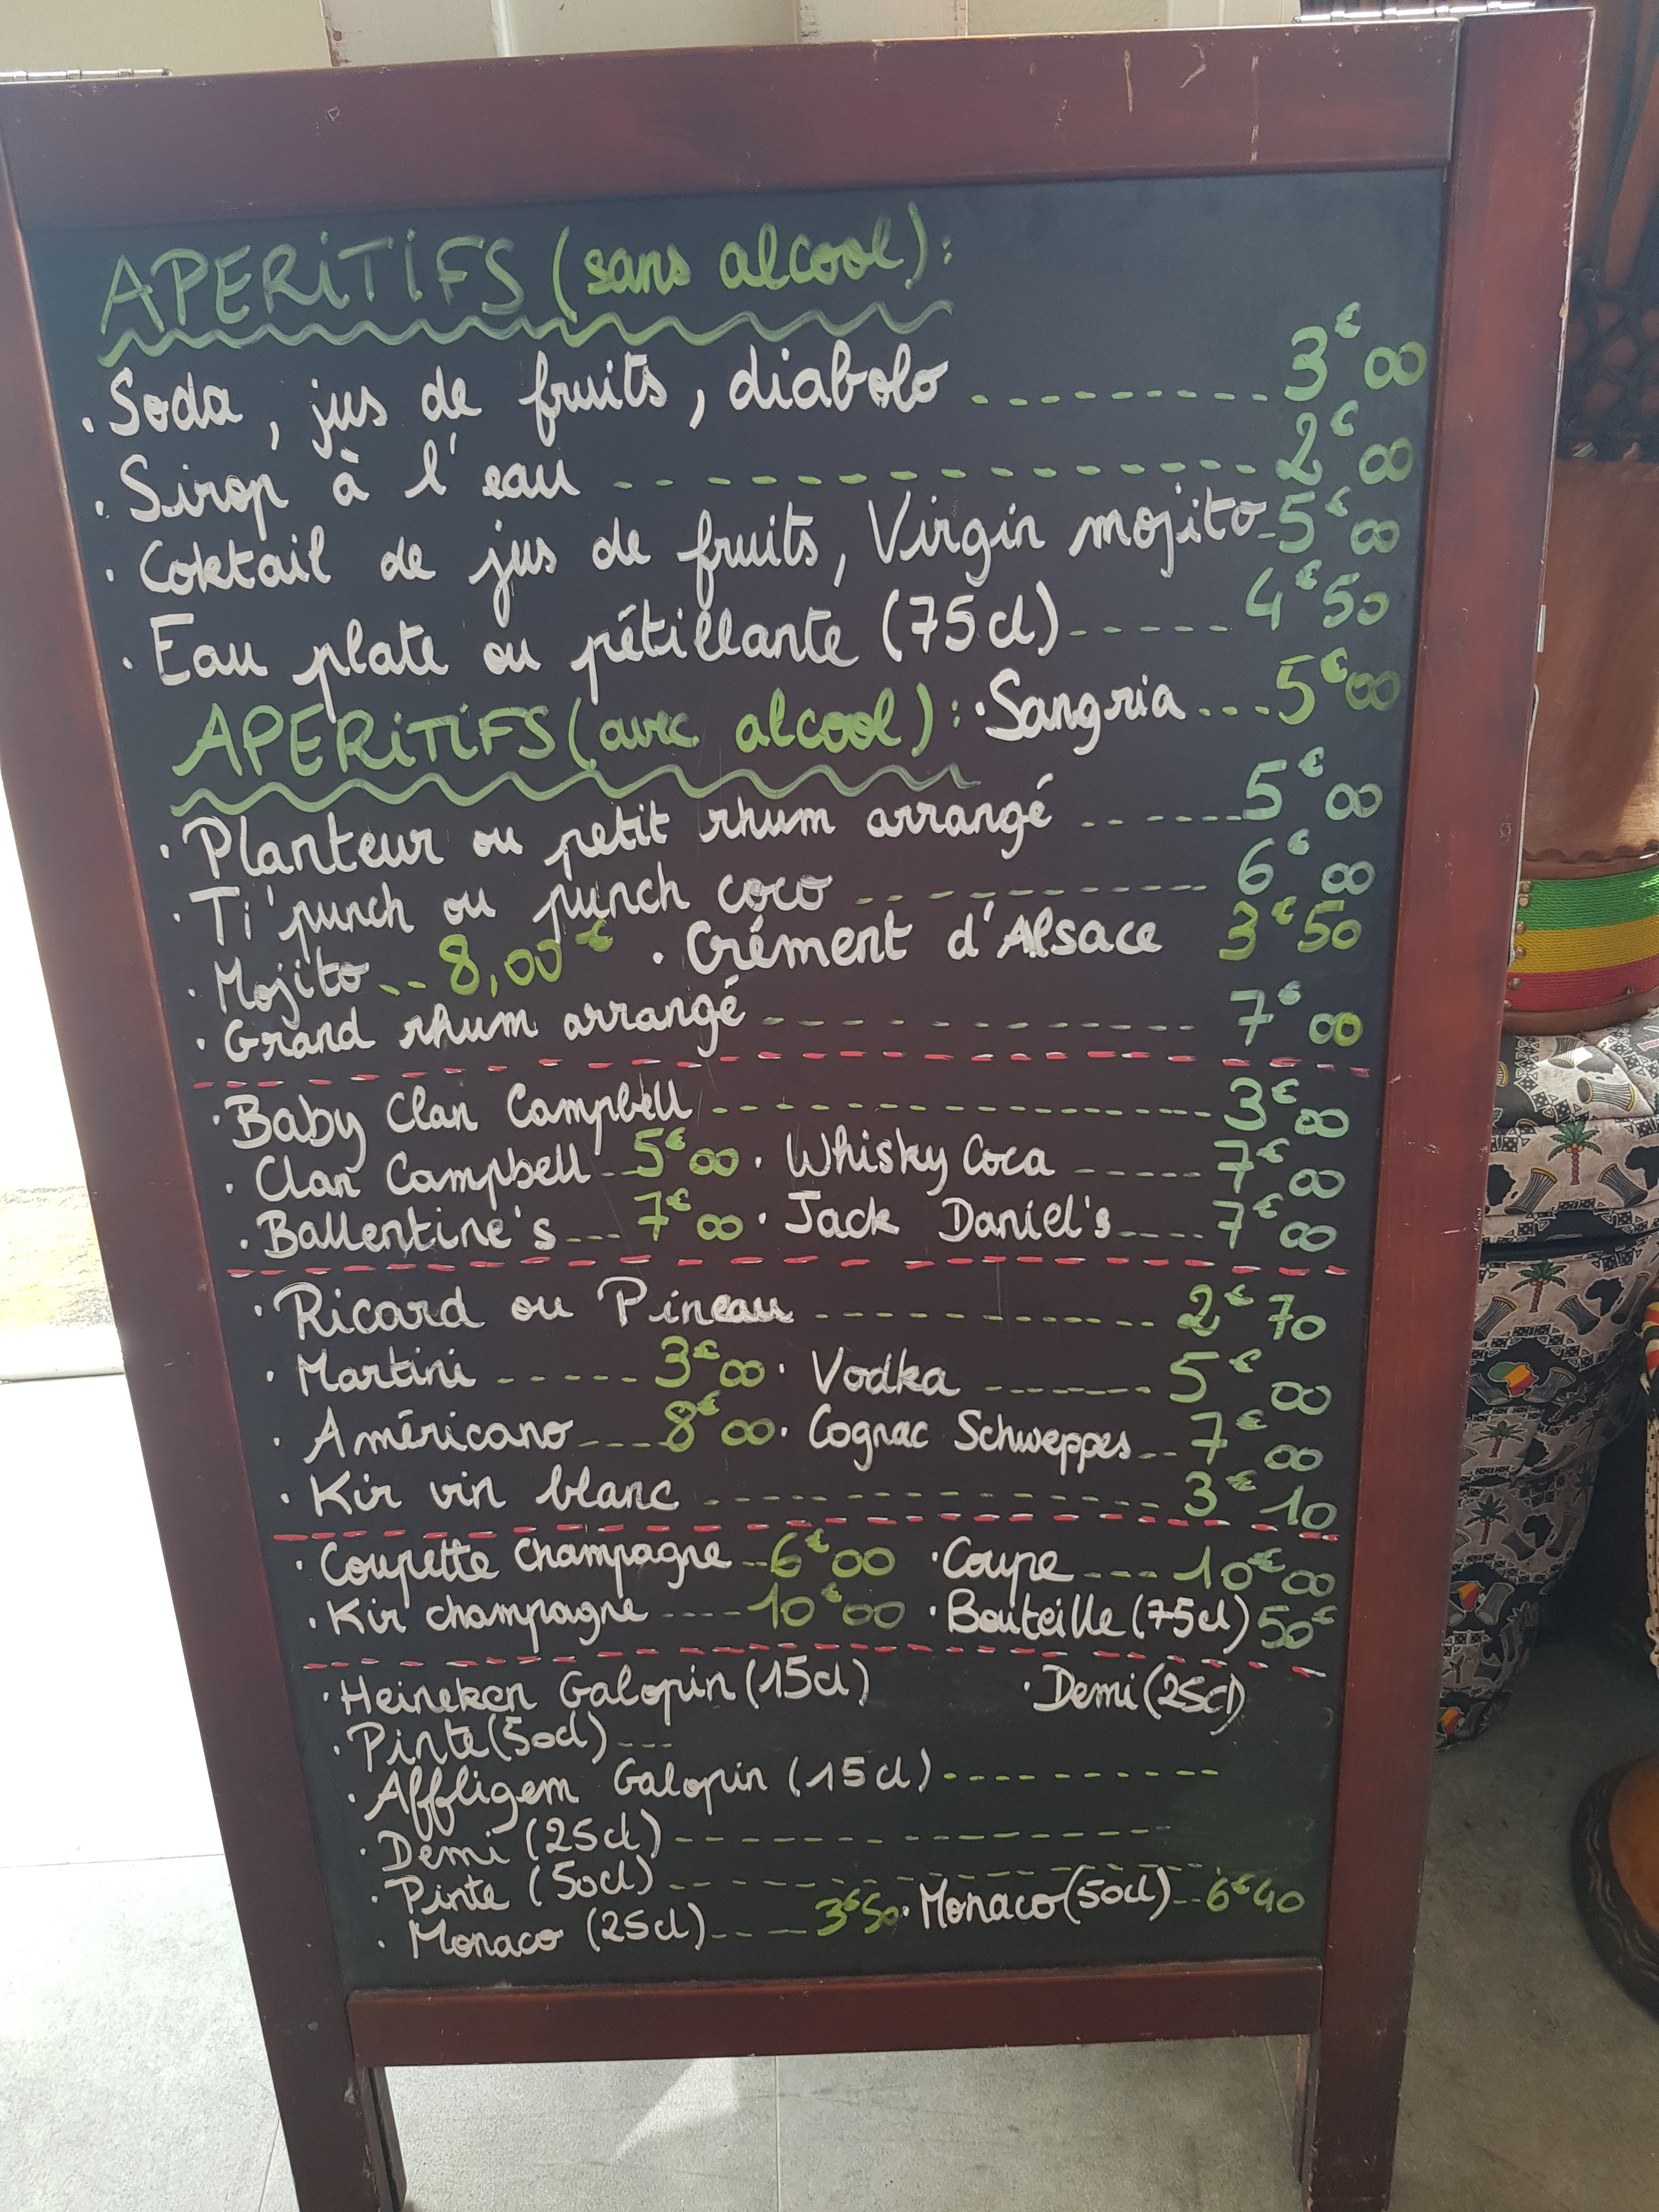 APERITIFS (sans alcool):
· Soda, jus de fruits, diabolo ---------- 3€00
· Sirop à l'eau -------------- 2€00
· Coktail de jus de fruits, Virgin mojito - 5€00
· Eau plate ou pétillante (75cl) ----- 4€50
APERITIFS (avec alcool): · Sangria --- 5€00
· Planteur ou petit rhum arrangé ------ 5€00
· Ti'punch ou punch coco ---------- 6€00
· Mojito -- 8,00€ · Crément d'Alsace 3€50
· Grand rhum arrangé ----------- 7€00
· Baby Clan Campbell --------------- 3€00
· Clan Campbell -- 5€00 · Whisky Coca ----- 7€00
· Ballentine's --- 7€00 · Jack Daniel's ---- 7€00
· Ricard ou Pineau ------------ 2€70
· Martini ----- 3€00 · Vodka ------- 5€00
· Américano ---- 8€00 · Cognac Schweppes -- 7€00
· Kir vin blanc -------------- 3€10
· Coupette Champagne -- 6€00 · Coupe --- 10€00
· Kir champagne ---- 10€00 · Bouteille (75cl) 50€
· Heineken Galopin (15cl) · Demi (25cl)
· Pinte (50cl) ---
· Affligem Galopin (15cl) ----------
· Demi (25cl) ---------------
· Pinte (50cl) ---------------
· Monaco (25cl) ---- 3€50 · Monaco (50cl) -- 6€40